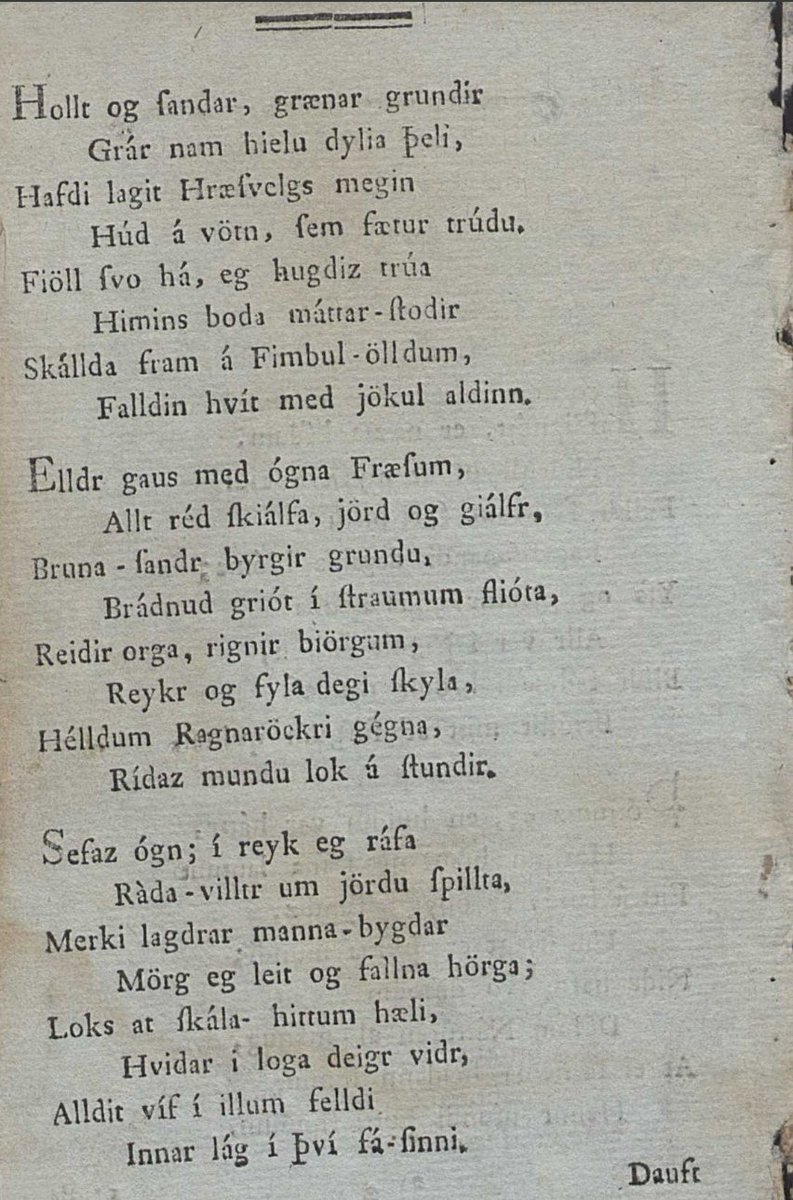 Hollt og ſandar, grænar grundir
Grár nam hielu dylia þeli,
Hafdi lagit Hræſvelgs megin
Húd á vötn, ſem fætur trúdu.
Fiöll ſvo há, eg hugdiz trúa
Himins boda máttar-ſtodir
Skállda fram á Fimbul-ölldum,
Falldin hvít med jökul aldinn.
Elldr gaus med ógna Fræſum,
Allt réd ſkiálfa, jörd og giálfr,
Bruna-ſandr byrgir grundu,
Brádnud griót í ſtraumum flióta,
Reidir orga, rignir biörgum,
Reykr og fyla degi ſkyla,
Hélldum Ragnaröckri gégna,
Rídaz mundu lok á ſtundir.
Sefaz ógn; í reyk eg ráfa
Ràda-villtr um jördu ſpillta,
Merki lagdrar manna-bygdar
Mörg eg leit og fallna hörga;
Loks at ſkála- hittum hæli,
Hvidar i loga deigr vidr,
Alldit víf í illum felldi
Innar lág í því fá-ſinni.
Dauft